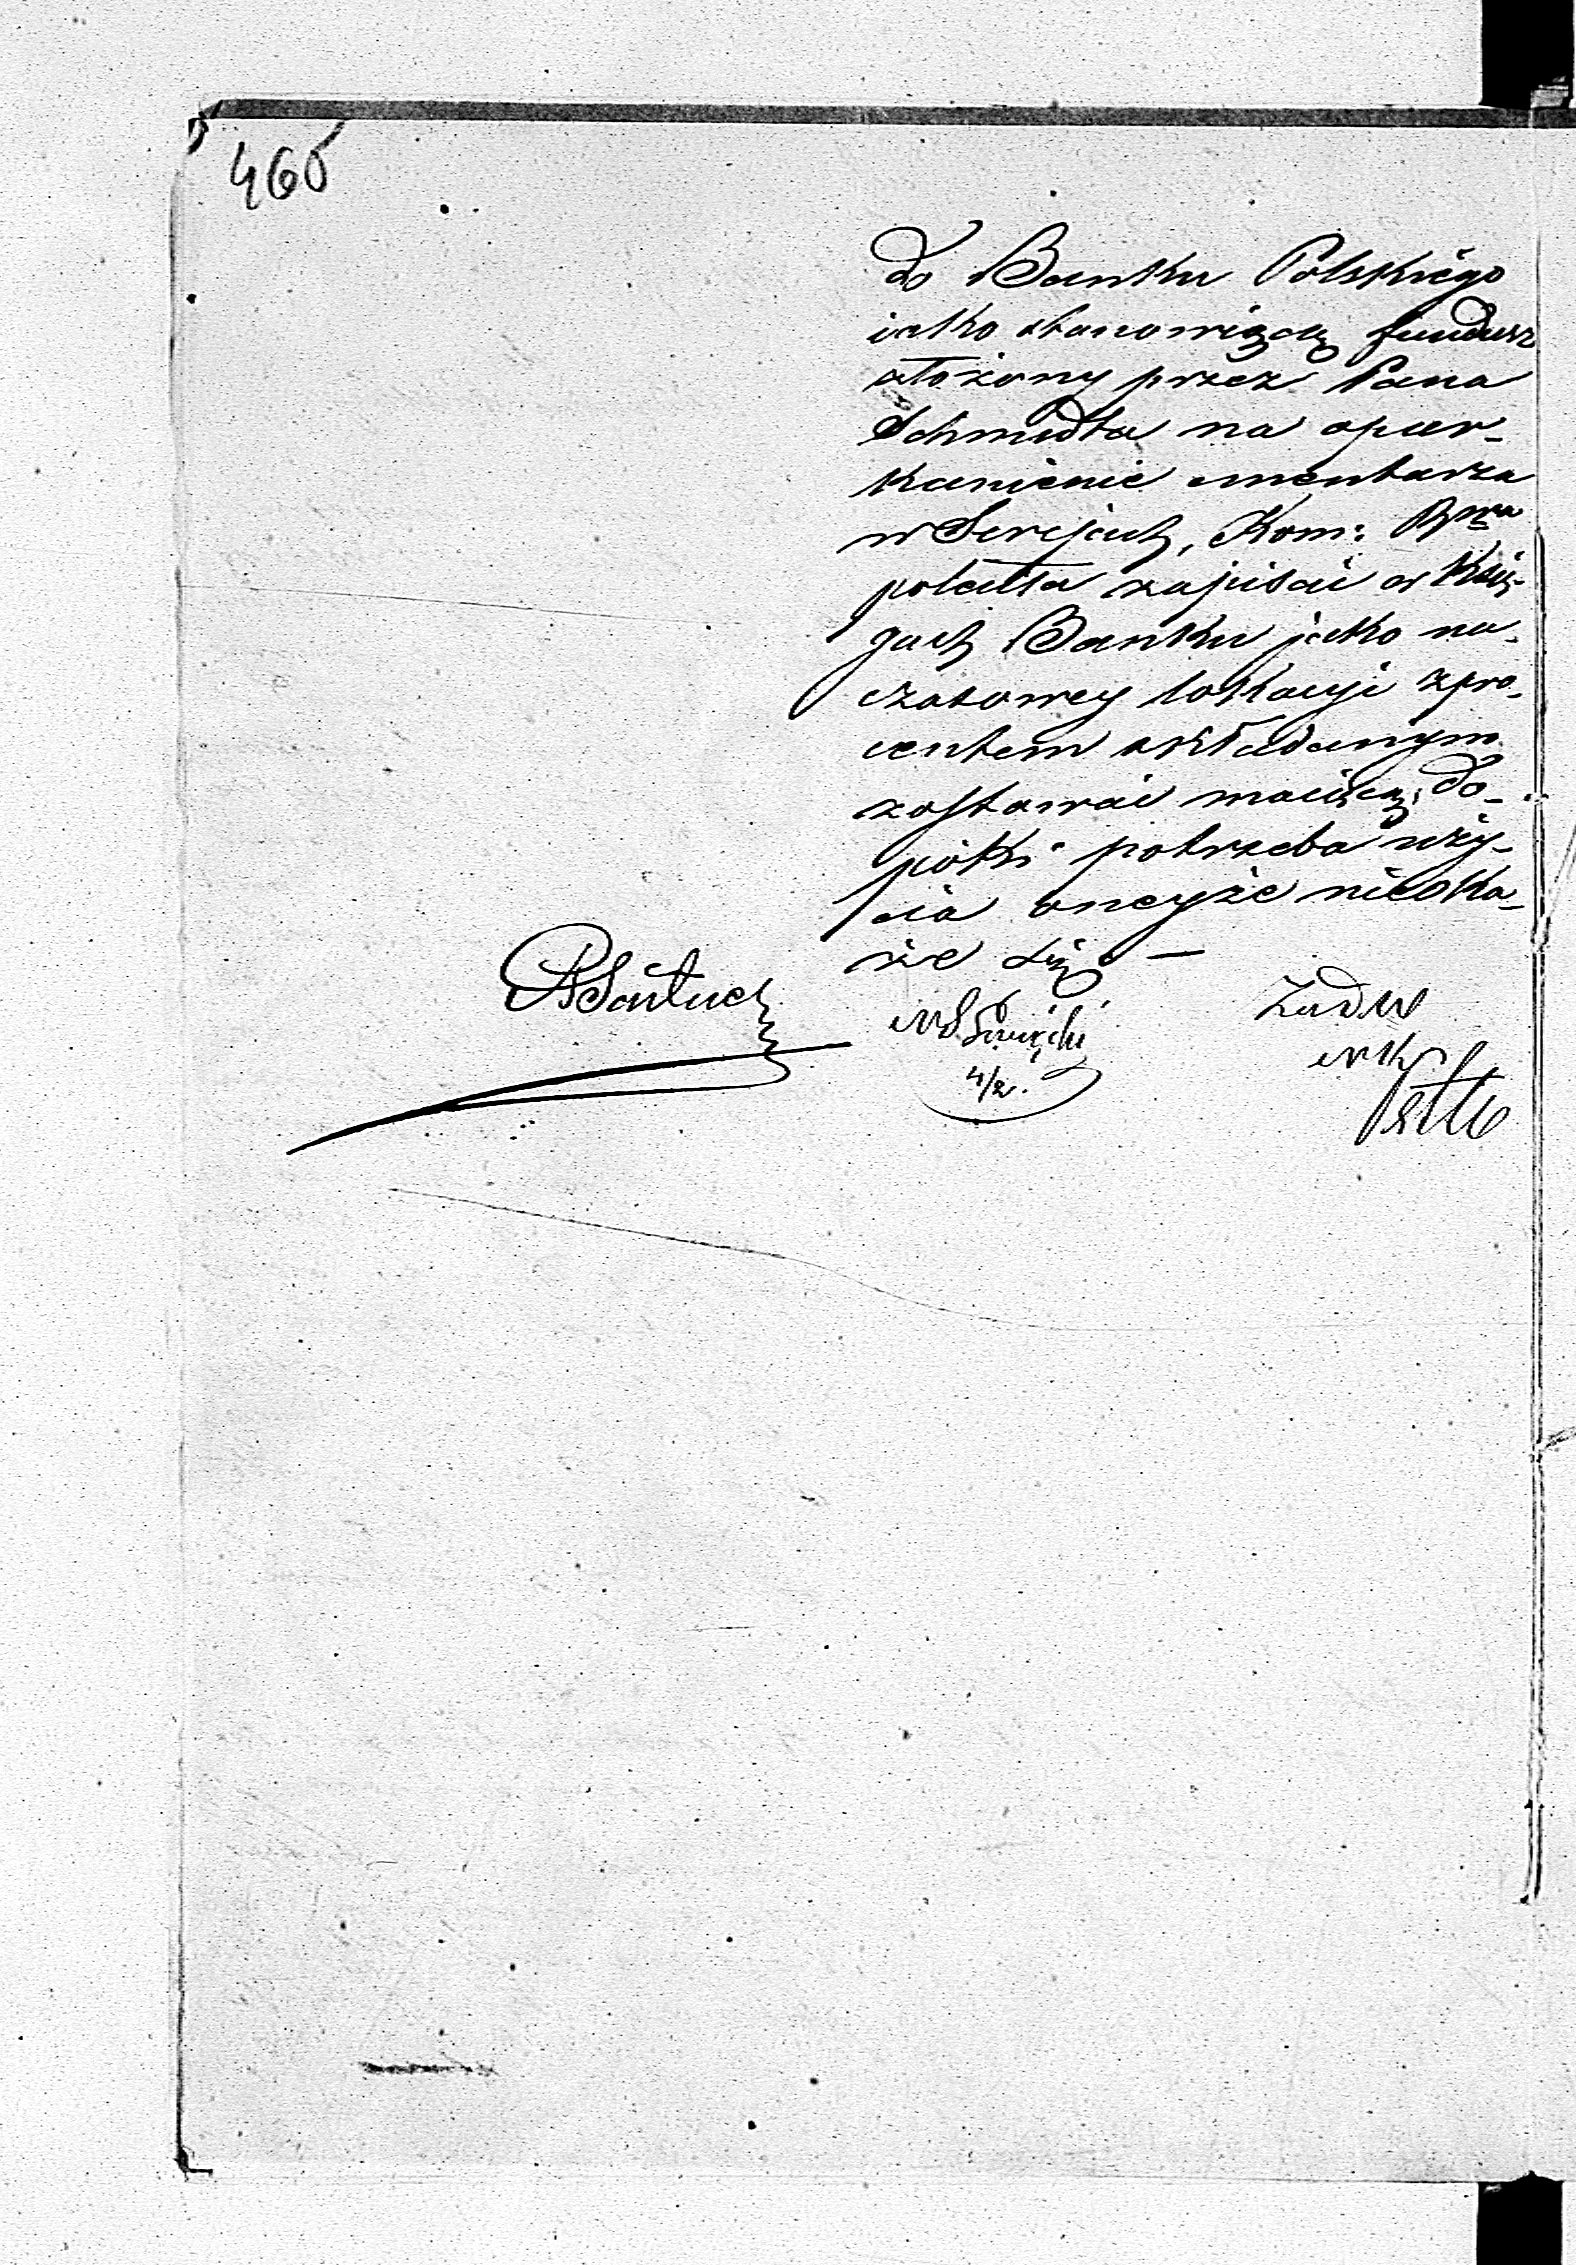 466
do Banku Polskiego
iako stanowiący fundusz
złożony przez Pana
Schmidta na opar-
kanienie cmentarza
w Serejach, Kom: Rząwa
poleciła zapisać w Księ-
gach Banku jako na
czasowey lokacyi z pro-
centem składanym
zostawać maiącą, do-
póki potrzeba uży-
cia oneyże nieoka-
że się —
4/2.